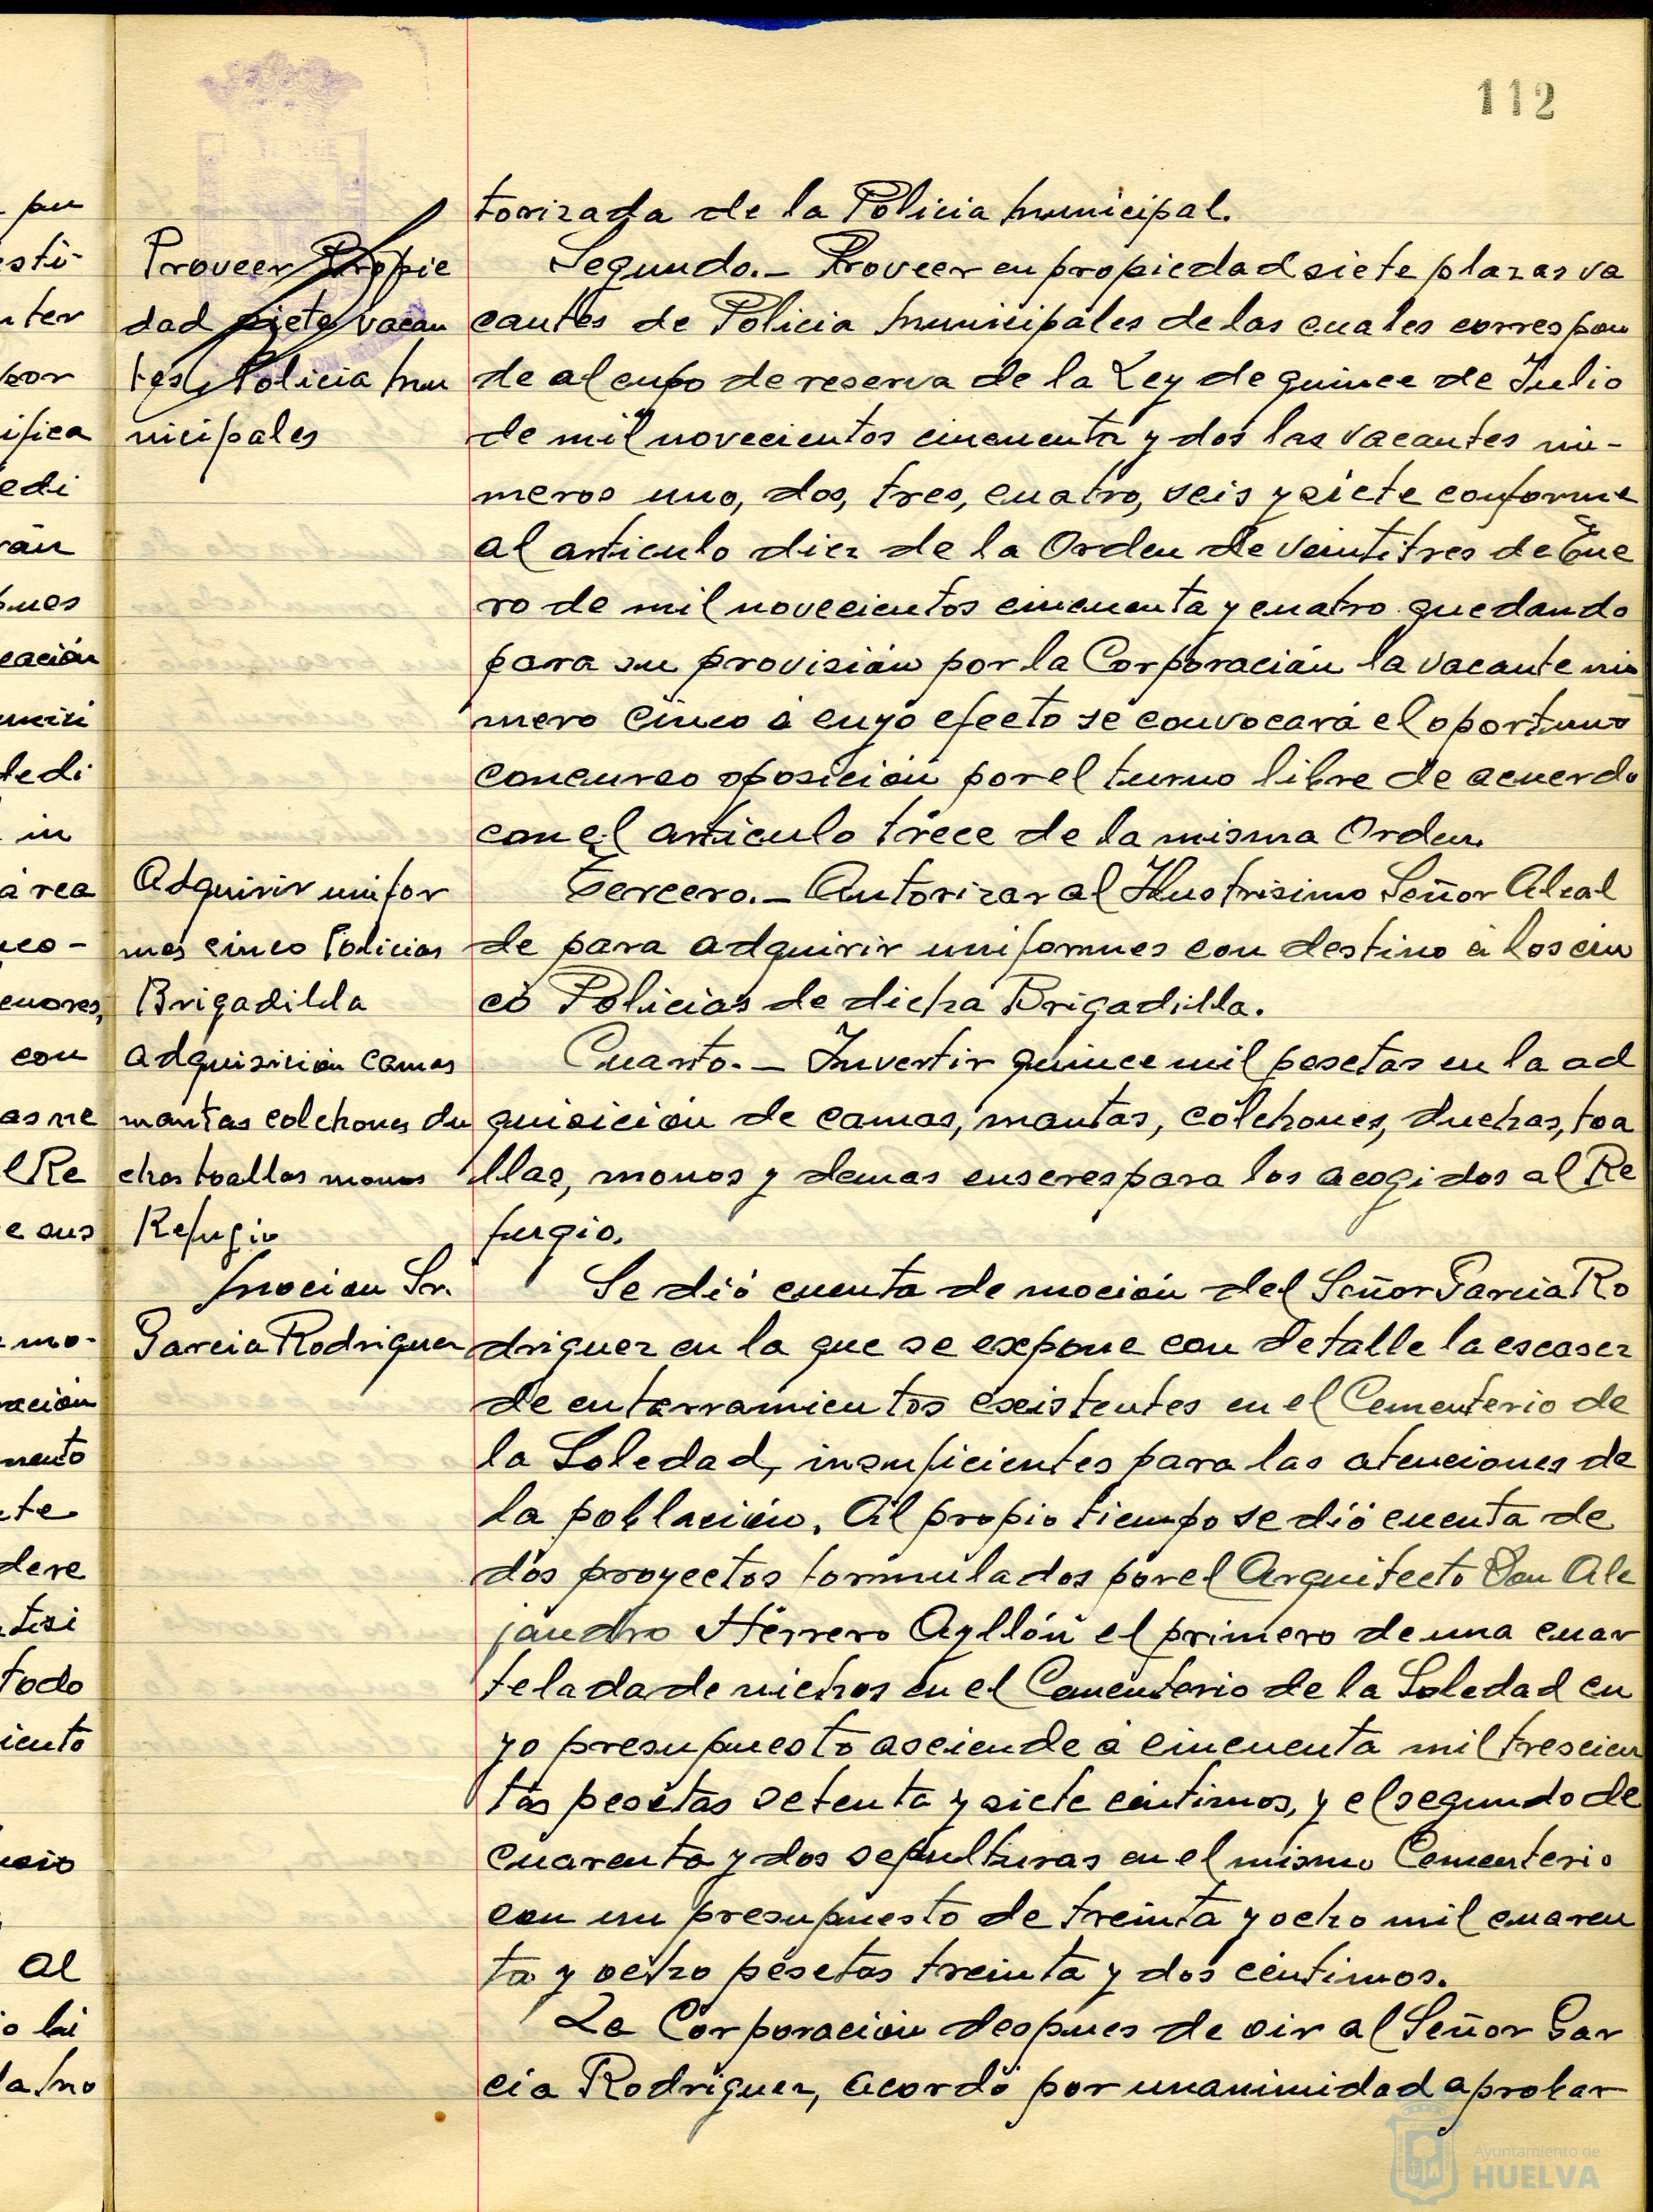 112
torizada de la Policia Municipal.
Proveer Propie
dad siete vacan
tes Policia Mu
nicipales
Segundo.- Proveer en propiedad siete plazas va
cantes de Policia Municipales de las cuales correspon
de al cupo de reserva de la Ley de quince de Julio
de mil novecientos cincuenta y dos las vacantes nú-
meros uno, dos, tres, cuatro, seis y siete conforme
al articulo diez de la Orden de veintitres de Ene
ro de mil novecientos cincuenta y cuatro quedando
para su provisión por la Corporación la vacante nú
mero cinco á cuyo efecto se convocará el oportuno
concurso oposición por el turno libre de acuerdo
con el articulo trece de la misma Orden.
Adquirir unifor
mes cinco Policias
Brigadilla
Tercero.- Autorizar al Ilustrisimo Señor Alcal
de para adquirir uniformes con destino á los cin
co Policias de dicha Brigadilla.
Adquisición camas
mantas colchones du
chas toallas monos
Refugio
Cuarto.- Invertir quince mil pesetas en la ad
quisición de camas, mantas, colchones, duchas, toa
llas, monos y demas enseres para los acogidos al Re
fugio.
Moción Sr.
Garcia Rodriguez
Se dió cuenta de moción del Señor Garcia Ro
driguez en la que se expone con detalle la escasez
de enterramientos existentes en el Cementerio de
la Soledad, insuficientes para las atenciones de
la población. Al propio tiempo se dió cuenta de
dos proyectos formulados por el Arquitecto Don Ale
jandro Herrero Ayllón el primero de una cuar
telada de nichos en el Cementerio de la Soledad cu
yo presupuesto asciende á cincuenta mil trescien
tas pesetas setenta y siete céntimos, y el segundo de
cuarenta y dos sepulturas en el mismo Cementerio
con un presupuesto de treinta y ocho mil cuaren
ta y ocho pesetas treinta y dos céntimos.
La Corporación despues de oir al Señor Gar
cia Rodriguez, acordó por unanimidad aprobar
Ayuntamiento de
HUELVA